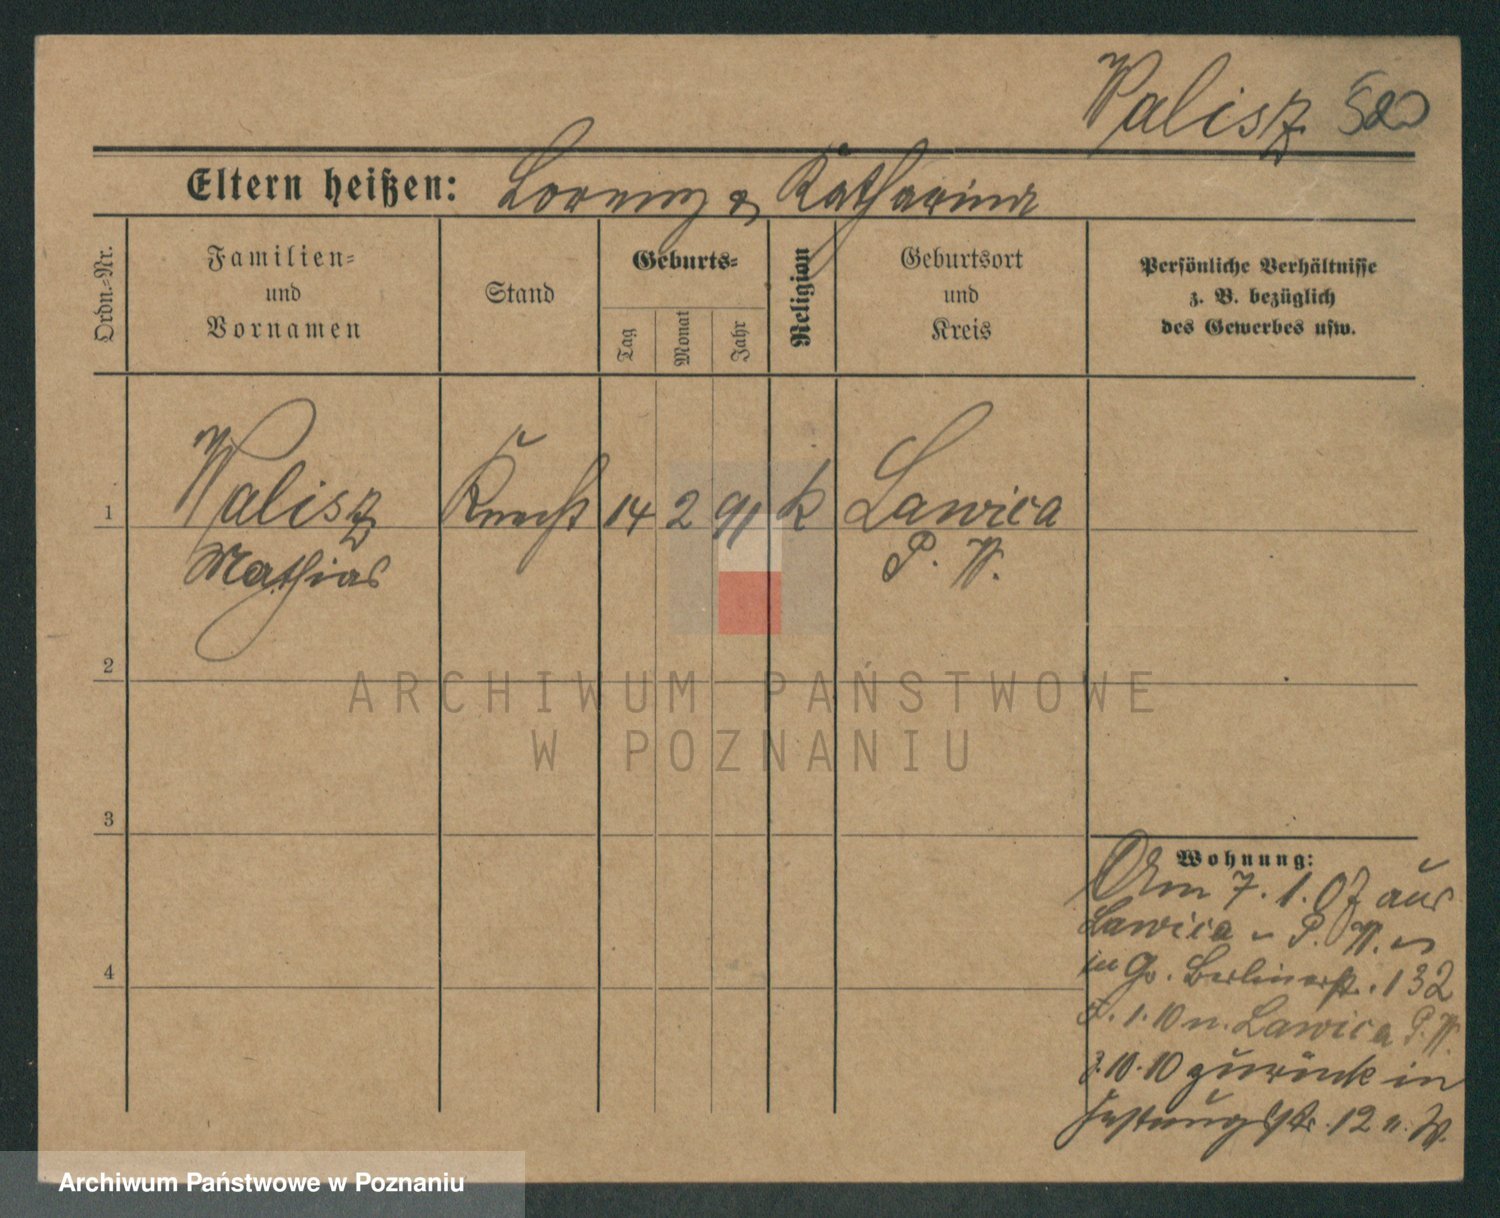 Walisz 520
Eltern heißen: Lorenz & Katharina
Ordn.-Nr.
Familien-
und
Vornamen
Stand
Geburts-
Tag
Monat
Jahr
Religion
Geburtsort
und
Kreis
Persönliche Verhältnisse
z. B. bezüglich
des Gewerbes usw.
1 Walisz Knecht 14 2 91 k Lawica
Mathias P. W.
2
3
4
ARCHIWUM PAŃSTWOWE
W POZNANIU
Wohnung:
Am 7. 1. 07 aus
Lawica - P. W.
in Gr. Berlinerstr. 132
1.10 n. Lawica P. W.
3.10.10 zurück in
Festungsstr. 12 n. W.
Archiwum Państwowe w Poznaniu